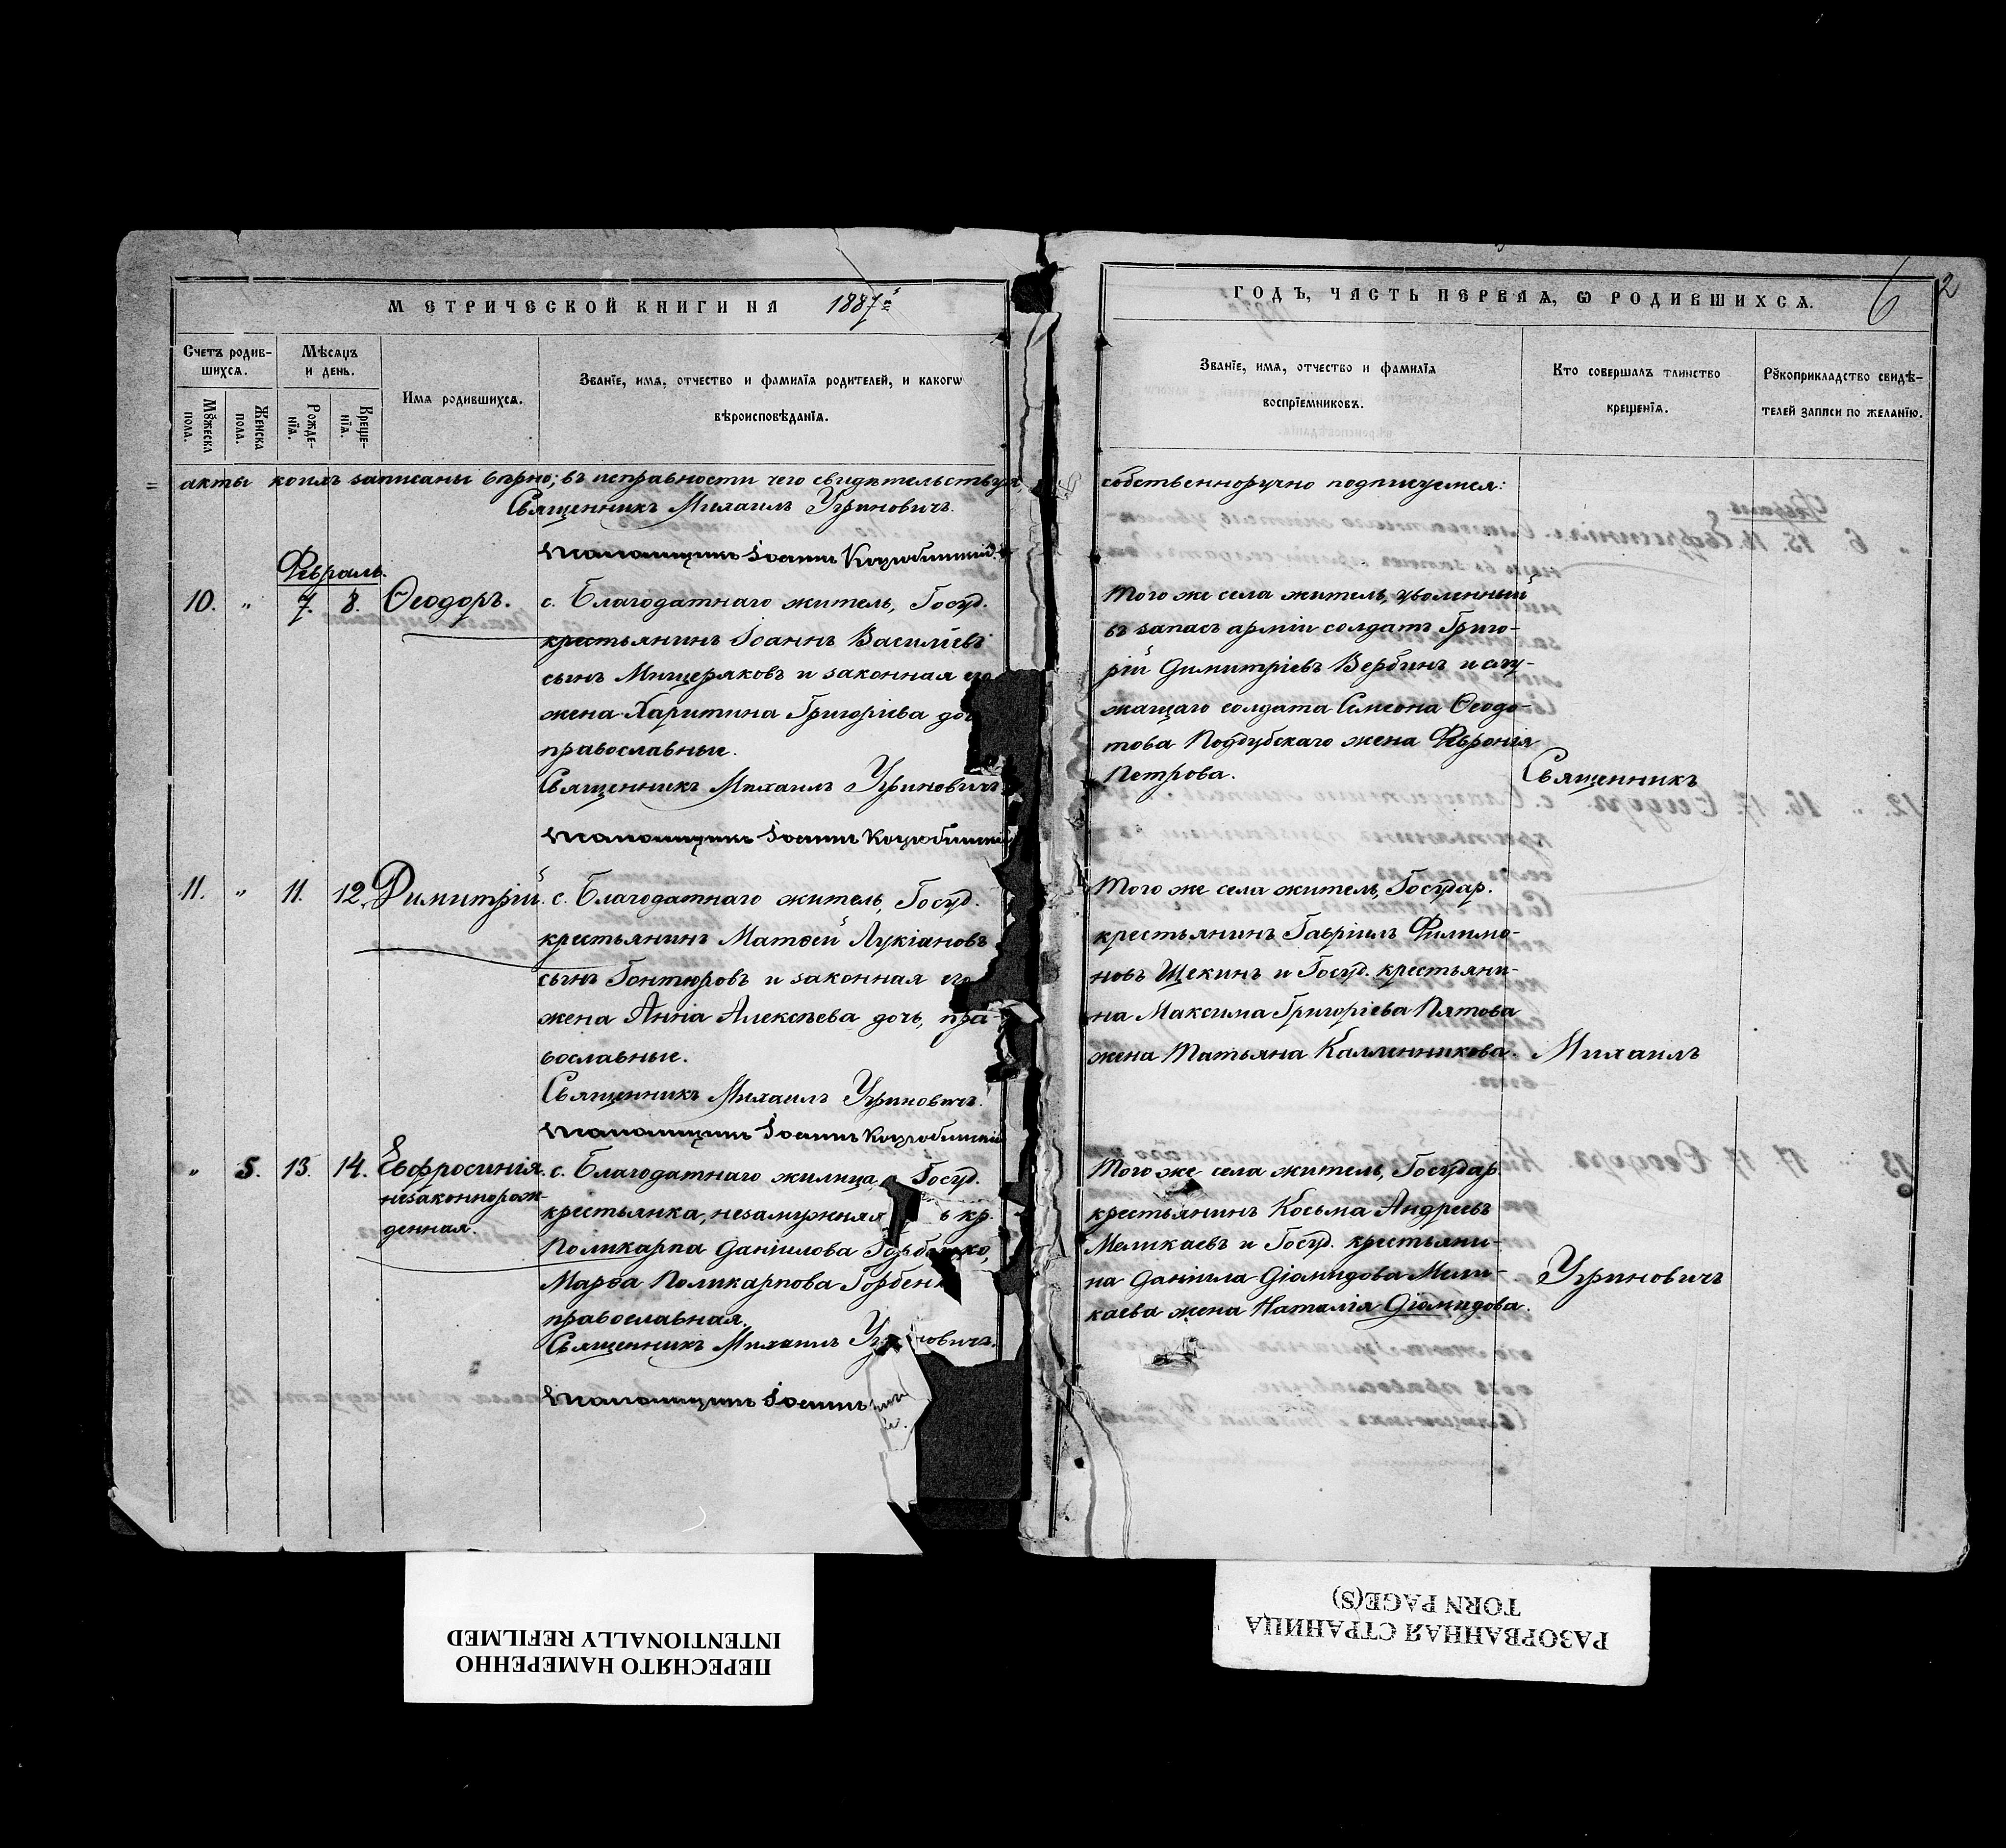 МЕТРИЧЕСКОЙ КНИГИ НА 1887й
ГОДЪ, ЧАСТЬ ПЕРВАЯ, Ѡ РОДИВШИХСЯ.
6 2
Счетъ родив-
шихся.
Мѣсяцъ
и день.
Имя родившихся.
Званїе, имя, отчество и фамилїя родителей, и какогѡ
вѣроисповѣданїя.
Мꙋжеска
пола.
Женска
пола.
Рожде-
нїя.
Креще-
нїя.
Званїе, имя, отчество и фамилїя
воспрїемниковъ.
Кто совершалъ таинство
крещенїя.
Рꙋкоприкладство свидѣ-
телей записи по желанїю.
акты коихъ записаны вѣрно; въ исправности чего свидѣтельствуя,
собственноручно подписуемся:
Священникъ Михаилъ Угриновичъ.
Псаломщикъ Іоаннъ Коцюбинскій.
Февраль.
10. " 7. 8. Ѳеодоръ.
с. Благодатнаго житель, Госуд.
крестьянинъ Іоаннъ Василіевъ
сынъ Мищеряковъ и законная его
жена Харитина Григоріева доч
православные.
Священникъ Михаилъ Угриновичъ
Псаломщикъ Іоаннъ Коцюбинскій
Того же села житель, уволенный
въ запасъ арміи солдатъ Григо-
рій Димитріевъ Вербинъ и слу-
жащаго солдата Симеона Ѳеодо-
това Поддубскаго жена Февронія
Петрова.
Священникъ
11. " 11. 12. Димитрій.
с. Благодатнаго житель, Госуд.
крестьянинъ Матѳей Лукіановъ
сынъ Гонтюровъ и законная его
жена Анна Алексѣева дочь, пра-
вославные.
Священникъ Михаилъ Угриновичъ.
Псаломщикъ Іоаннъ Коцюбинскій
Того же села житель, Государ.
крестьянинъ Гавріилъ Филимо-
новъ Щекинъ и Госуд. крестьяни-
на Максима Григоріева Пятова
жена Татьяна Каллинникова.
Михаилъ
" 5. 13. 14. Евфросинія.
незаконнорож-
денная.
с. Благодатнаго жилица, Госуд.
крестьянка, незамужняя ь кр.
Поликарпа Даніилова Горбенко,
Марѳа Поликарпова Горбен
православная.
Священникъ Михаилъ Угриновичъ.
Псаломщикъ Іоаннъ
Того же села житель, Государ.
крестьянинъ Косьма Андреевъ
Меликаевъ и Госуд. крестьяни-
на Даніила Діомидова Мели-
каева жена Наталія Діомидова.
Угриновичъ
ПЕРЕСНЯТО НАМЕРЕННО
INTENTIONALLY REFILMED
РАЗОРВАННАЯ СТРАНИЦА
TORN PAGE(S)